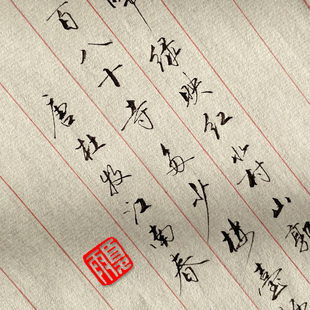 緑映红水村山郭
百八十寺多少樓臺
唐杜牧江南春